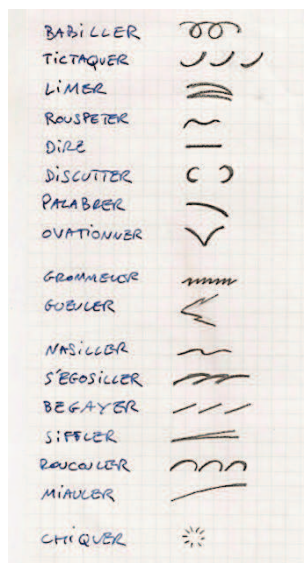 BABILLER
TICTAQUER
LIMER
ROUSPETER
DIRE
DISCUTTER
PALABRER
OVATIONNER
GROMMELER
GUEULER
NASILLER
S'ÉGOSILLER
BEGAYER
SIFFLER
ROUCOULER
MIAULER
CHIQUER